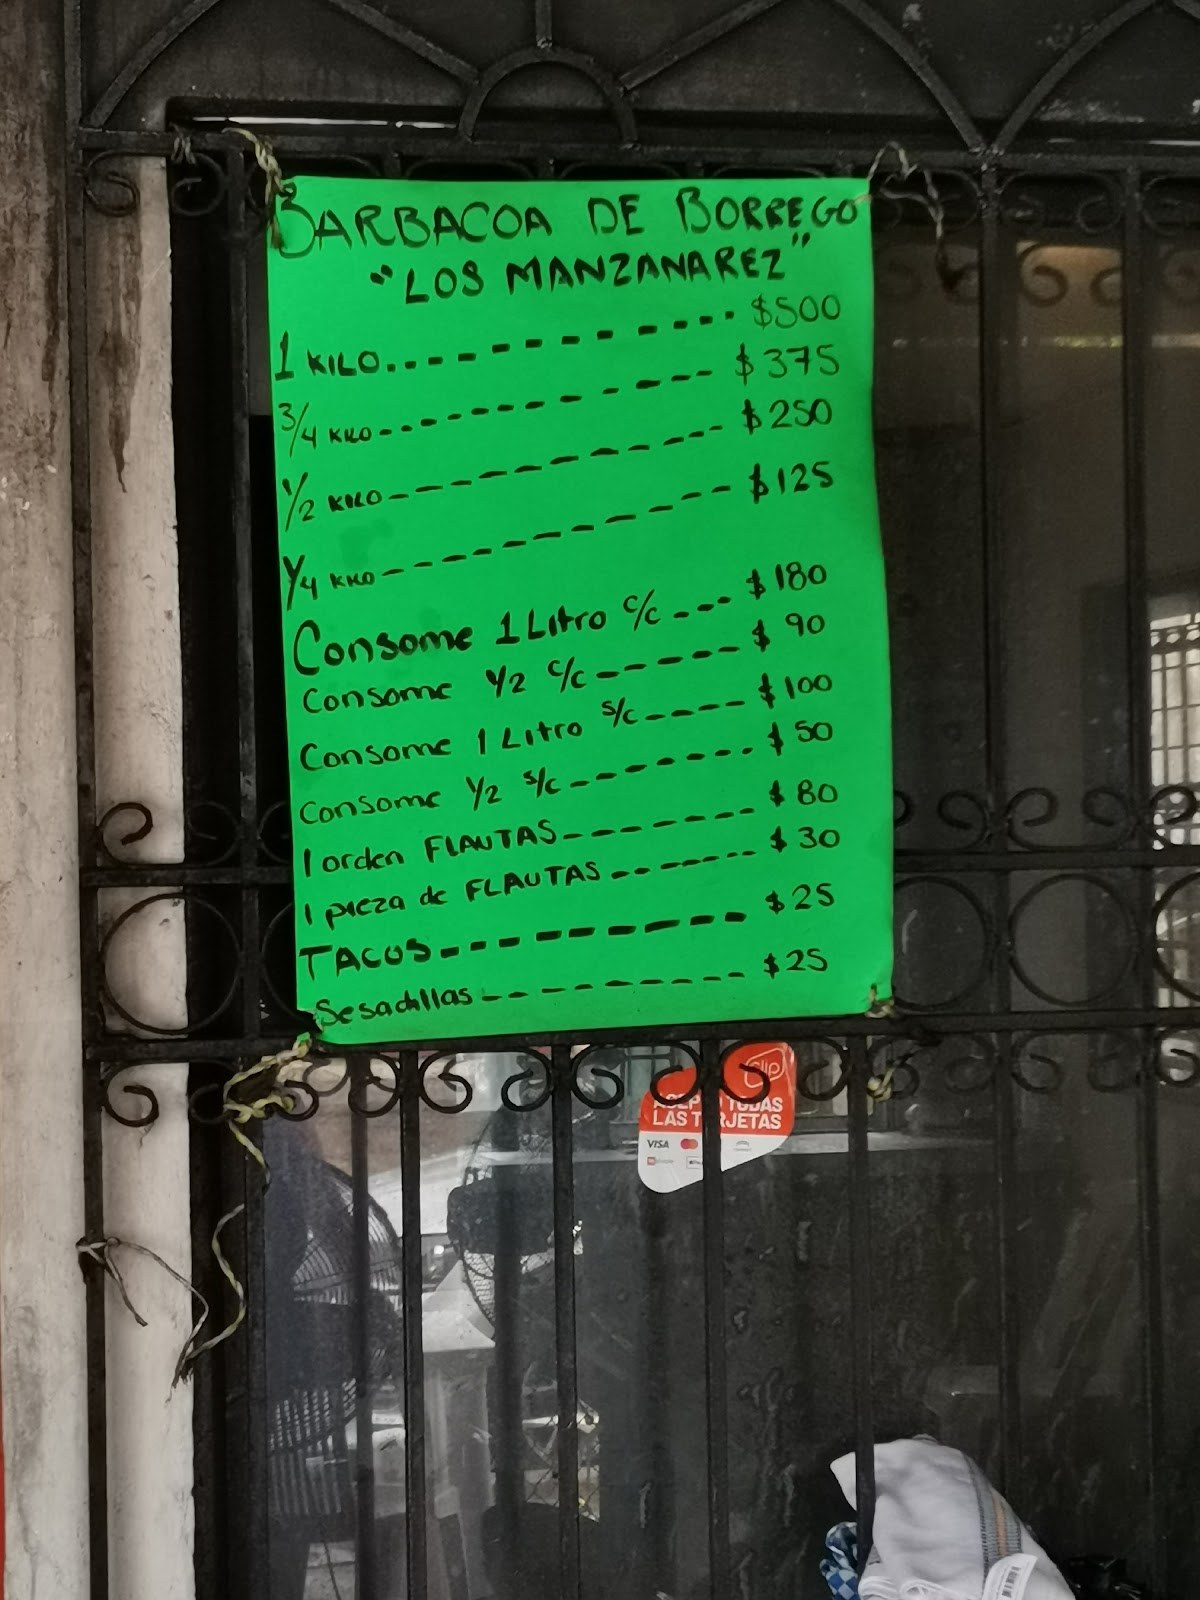 BARBACOA DE BORREGO
"LOS MANZANAREZ"
1 KILO $500
3/4 KILO $375
1/2 KILO $250
1/4 KILO $125
Consome 1 Litro c/c $180
Consome 1/2 c/c $90
Consome 1 Litro s/c $100
Consome 1/2 s/c $50
1 orden FLAUTAS $80
1 pieza de FLAUTAS $30
TACOS $25
Sesadillas $25
clip
TODAS
LAS TARJETAS
VISA